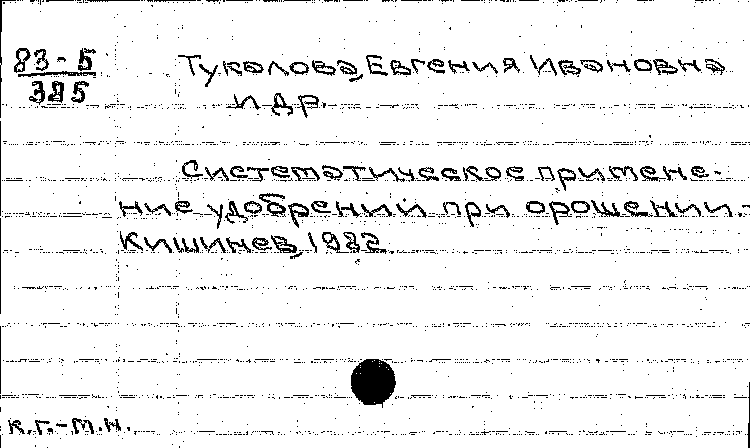 83-5
385
Тукалова, Евгения Ивановна
и др.
Систематическое примене-
ние удобрений при орошении.-
Кишинев, 1982.
К.Г.-М.Н.